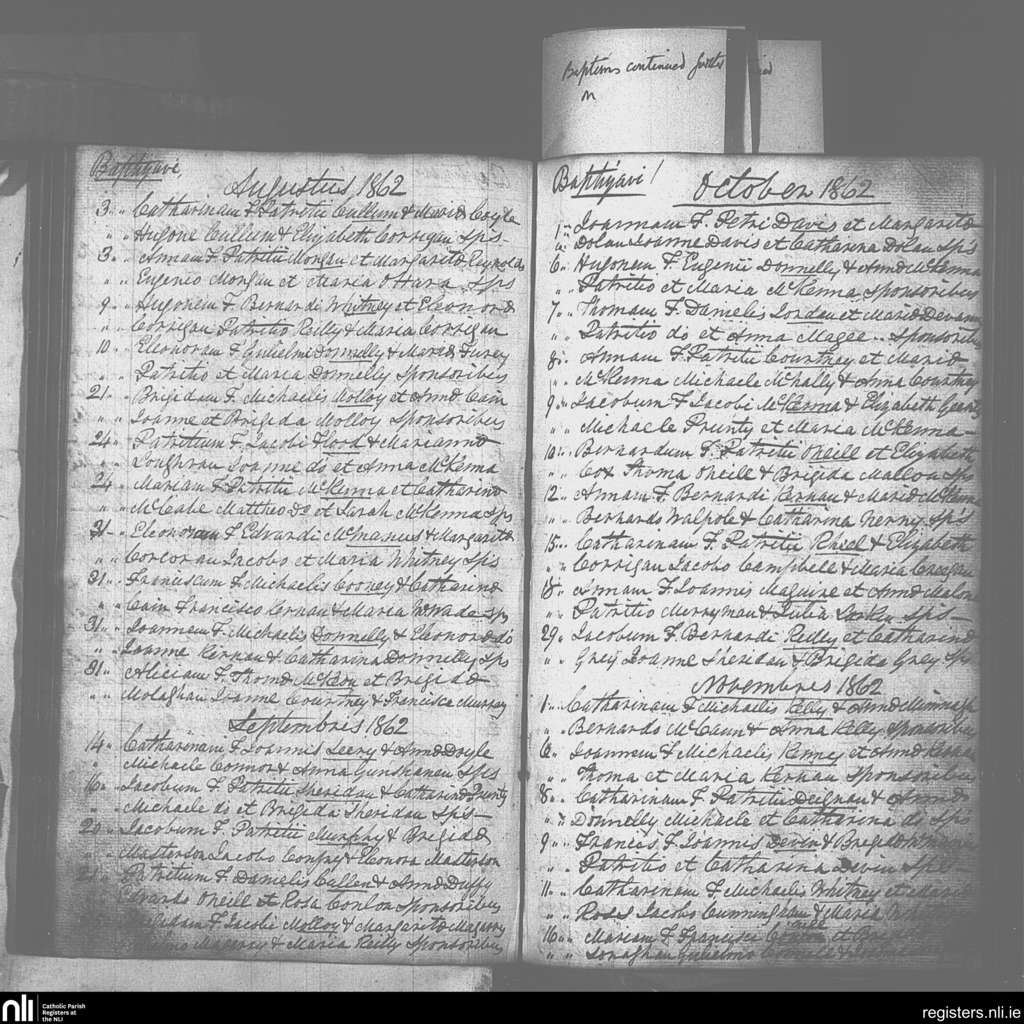 Baptisms continued further
in
Baptizavi
Augustus 1862
3 " " Catharinam F. Patritii Cullum & Maria Coyle
" " Hugone Cullum & Elizabeth Corrigan Sps
3 " " Annam F. Patritii Morgan et Margarita Reynolds
" " Eugenio Morgan et Maria O Hara Sps
9 " " Hugonem F Bernardi Whitney et Eleonora
" " Corrigan Patritio Reilly & Maria Corrigan
10 " " Eleonoram F Gulielmi Donnelly & Maria Furey
" " Patritio et Maria Donnelly Sponsoribus
21 " " Brigidam F. Michaelis Molloy et Anna Cain
" " Joanne et Brigida Molloy Sponsoribus
24 " " Patritium F. Jacobi Flood & Marianna
" " Loughran Joanne do et Anna McKenna
24 " " Mariam F. Patritii McKenna et Catharina
" " McCabe Mattheo do et Sarah McKenna Sps
31 " " Eleonoram F. Edvardi McManus & Margarita
" " Corcoran Jacobo et Maria Whitney Sps
31 " " Franciscum F. Michaelis Cooney & Catharina
" " Cain Francisco Kernan & Maria Sps
31 " " Joannem F. Michaelis Donnelly & Eleonora do
" " Joanne Kernan & Catharina Donnelly Sps
31 " " Aliciam F. Thoma McKeon et Brigida
" " Molaghan Joanne Courtney & Francisca Murray
Septembris 1862
14 " " Catharinam F. Joannis Leery & Anna Doyle
" Michaele Connor & Anna Gunshanan Sps
16 " " Jacobum F. Patritii Sheridan & Catharina Prunty
" " Michaele do et Brigida Sheridan Sps
20 " " Jacobum F. Patritii Murphy & Brigida
" " Masterson Jacobo Confrey & Eleonora Masterson
Patritium F. Danielis Cullen & Anna Duffy
Edvardo Oneill et Rosa Conlon Sponsoribus
F. Jacobi Molloy & Margarita Magarry
Magarry & Maria Reilly Sponsoribus
Baptizavi
October 1862
1 " " Joannem F. Petri Davis et Margarita
" " Dolan Joanne Davis et Catharina Dolan Sps
6 " " Hugonem F. Eugenii Donnelly & Anna McKenna
" " Patritio et Maria McKenna Sponsoribus
7 " " Thomam F. Danielis Jordan et Maria Devann
" " Patritio do et Anna Magee " " Sponsorib
8 " " Annam F. Patritii Courtney et Maria
" " McKenna Michaele McNally & Anna Courtney
9 " " Jacobum F Jacobi McKenna & Elizabeth
" " Michaele Prunty et Maria McKenna
10 " " Bernardum F. Patritii Oneill et Elizabeth
" " Cox Thoma Oneill & Brigida Mallon Sps
12 " " Annam F. Bernardi Kernan & Maria McKenna
" " Bernardo Walpole & Catharina Nerny Sps
15 " " Catharinam F. Patritii & Elizabeth
" " Corrigan Jacobo Campbell & Maria Creegan
18 " " Annam F. Joannis Maguire et Anna Malon
" " Patritio Merryman & Julia Larkin Sps
29 " " Jacobum F. Bernardi Reilly et Catharina
" " Grey Joanne Sheridan & Brigida Grey Sps
Novembris 1862
1 " " Catharinam F. Michaelis Kelly & Anna
Bernardo McCann & Anna Kelly Sponsoribus
6 " " Joannem F. Michaelis Kenney et Anna
" " Thoma et Maria Kernan Sponsoribus
8 " " Catharinam F. Patritii Deignan & Anna
" " Donnelly Michaele et Catharina do Sps
9 " " Francis F. Joannis Devin & Brigida
" " Patritio et Catharina Devin Sps
11 " " Catharinam F. Michaelis Whitney et Maria
" " Rosss Jacobo Cunningham & Maria
16 " " Mariam F. Francisci
" " Lonaghan Gulielmo
nli
Catholic Parish
Registers at
the NLI
registers.nli.ie